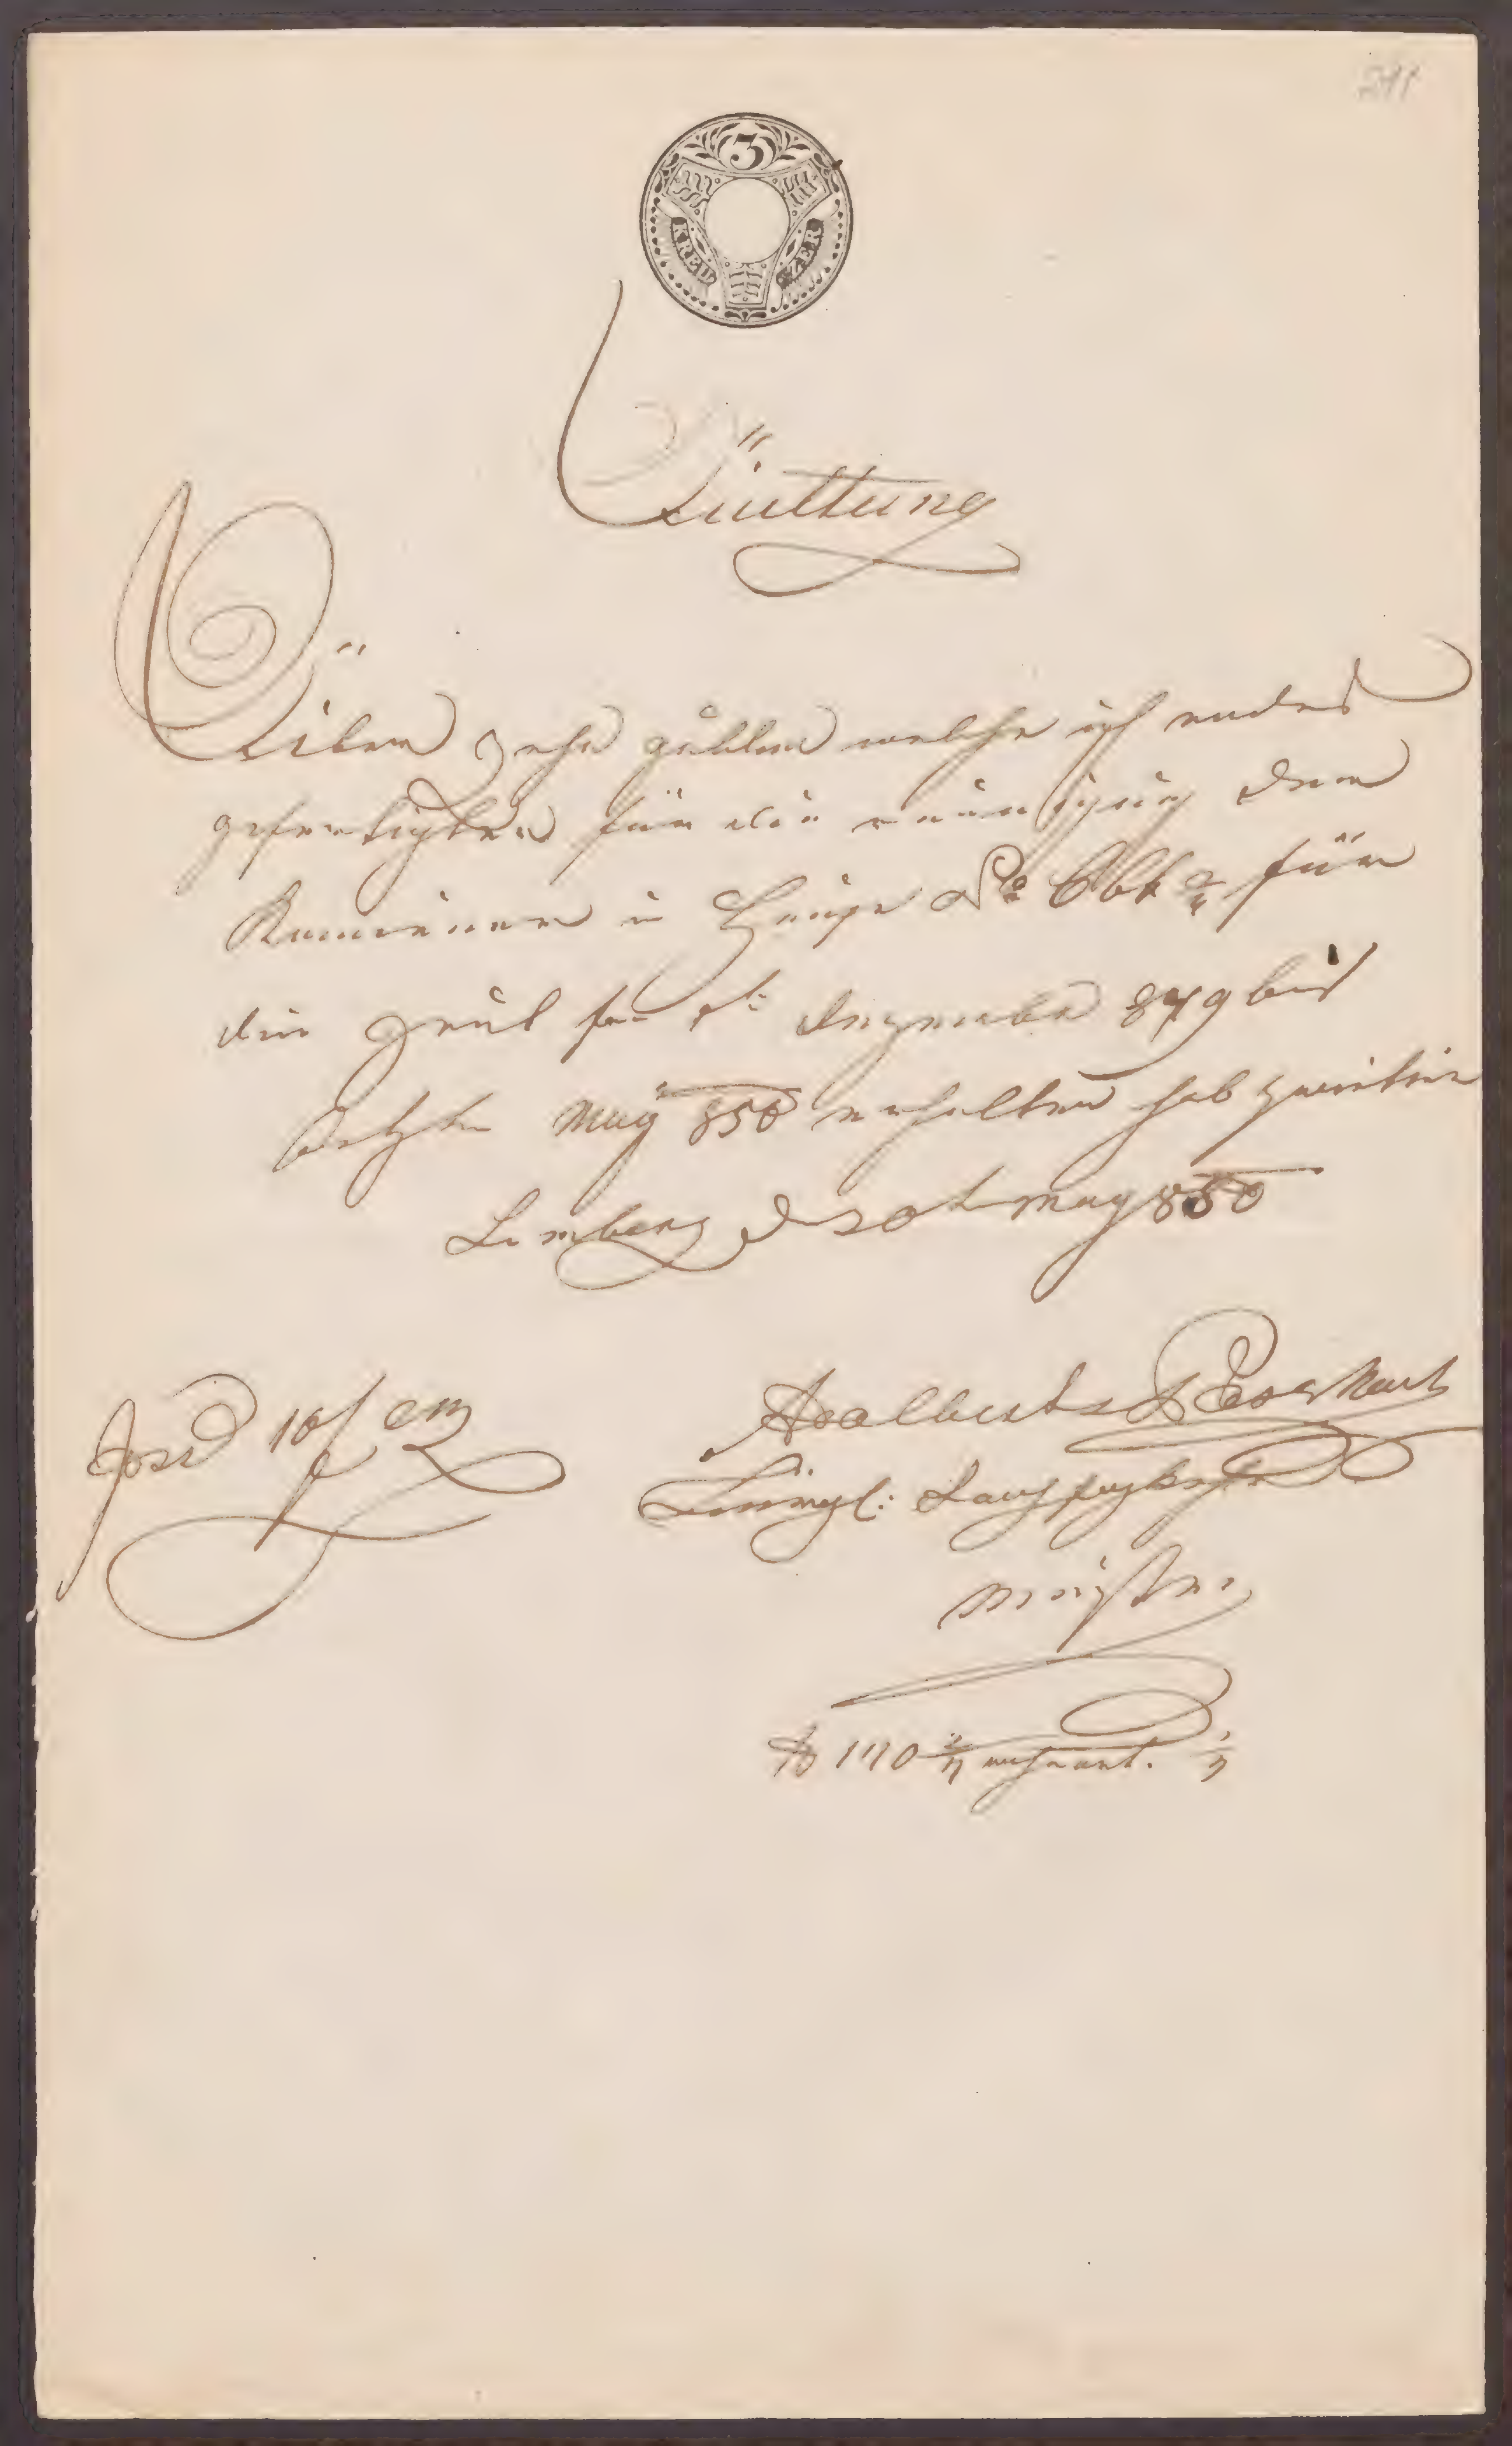 211
3
KREU ZER
Quittung
Über zehn gulden welche ich endes
gefertigter für die reinigung der
Kamiener in Hause No 664 2/4 für
die zeit fom 1t: Dezember 849 bis
Letzten May 850 erhalten hab zweitein
Lemberg d 20t May 850
10f CM
Adalbert
bürgl: Rauchfangkehrer
meister
110 2/4 wohnhaft.